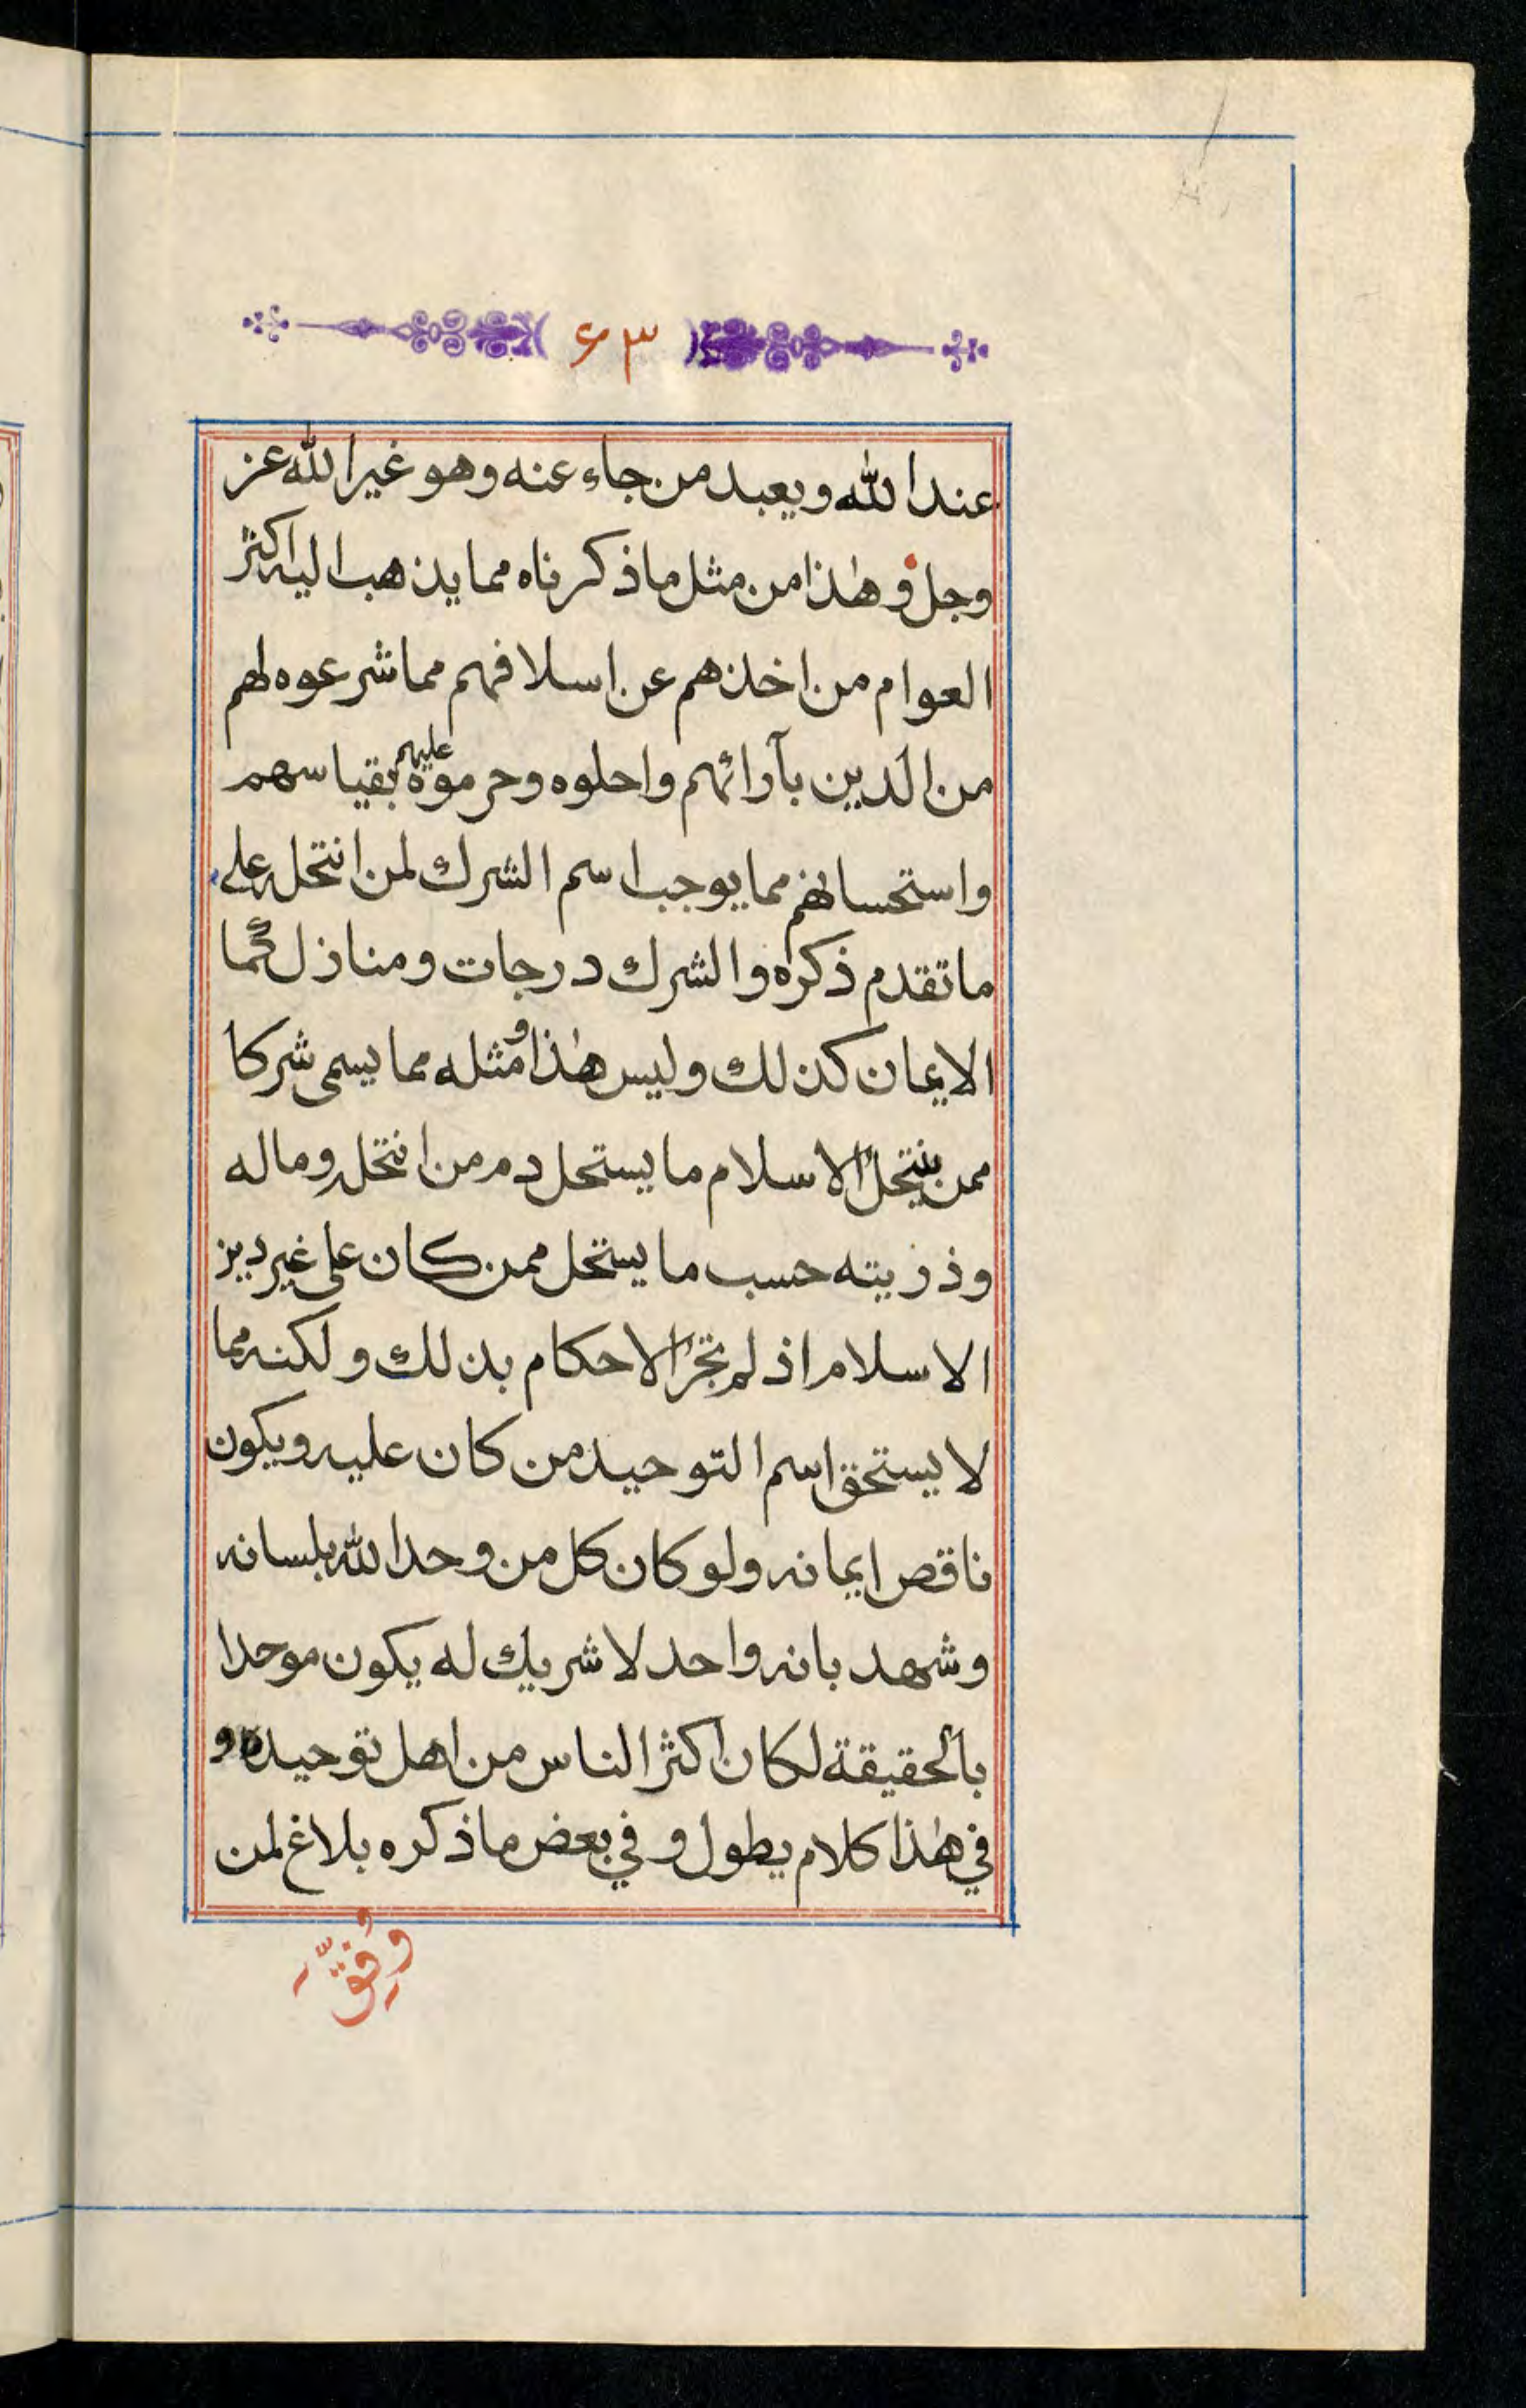 ۶۳
عند الله ويعبد من جاء عنه وهو غير الله عز
وجل وهٰذا من مثل ما ذكرناه مما يذهب اليه اكثر
العوام من اخذهم عن اسلافهم مما شرعوه لهم
من الدين بآرائهم واحلوه وحرموه عليهم بقياسهم
واستحسانهم مما يوجب اسم الشرك لمن انتحله على
ما تقدم ذكره والشرك درجات ومنازل كما
الايمان كذلك وليس هٰذا ومثله مما يسمى شركا
ممن ينتحل الاسلام ما يستحل دم من انتحله وماله
وذريته حسب ما يستحل ممن كان على غير دين
الاسلام اذ لم تجر الاحكام بذلك ولكنه مما
لا يستحق اسم التوحيد من كان عليه ويكون
ناقص ايمانه ولو كان كل من وحد الله بلسانه
وشهد بانه واحد لا شريك له يكون موحدا
بالحقيقة لكان اكثر الناس من اهل توحيده و
في هٰذا كلام يطول وفي بعض ما ذكره بلاغ لمن
وُفِّقَ